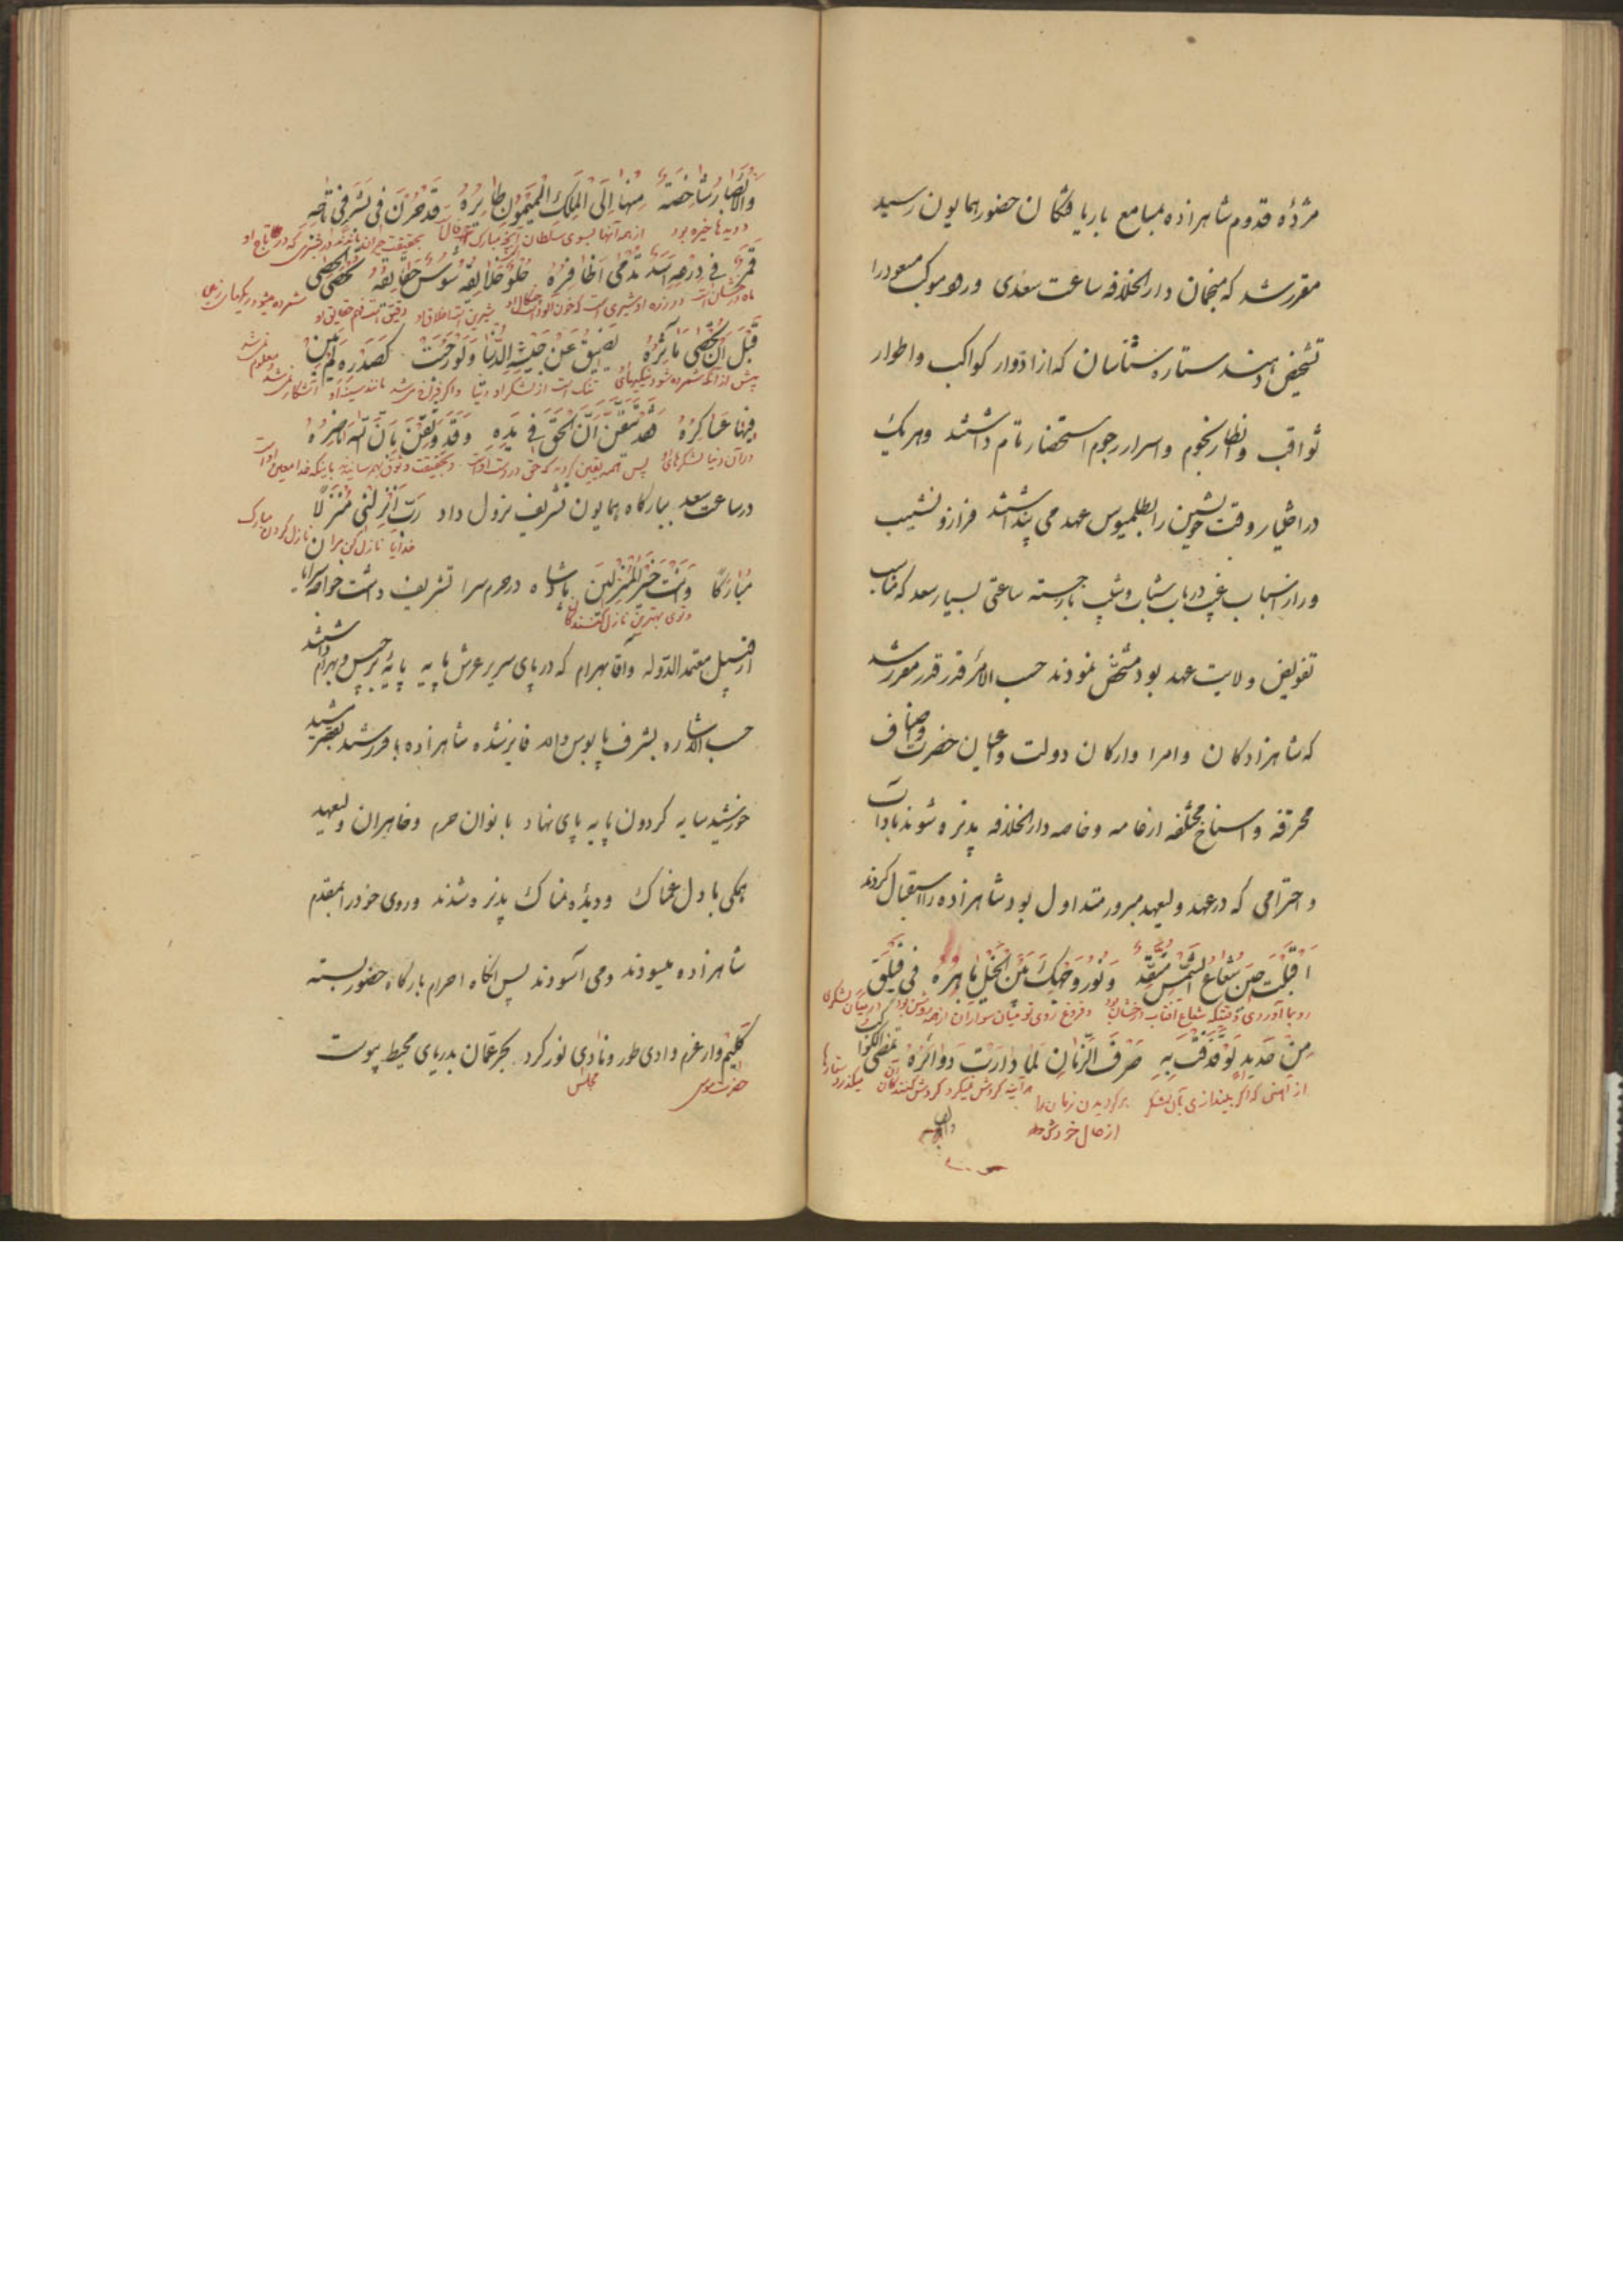 مژدهٔ قدوم شاهزاده بمسامع باریافتگان حضور همایون رسید
مقرر شد که منجمان دار الخلافه ساعت سعدی ورود موکب مسعود را
تشخیص دهند ستاره شناسان که از ادوار کواکب و اطوار
ثواقب و انظار نجوم و اسرار رجوم استحضار تام داشتند و هر یک
در اختیار وقت خویشتن را بطلمیوس عهد می پنداشتند فراز و نشیب
باز جسته ساعتی بسیار سعد که مناسب
تفویض ولایت عهد بود مشخص نمودند حسب الامر قدر قدر مقرر شد
که شاهزادگان و امرا و ارکان دولت و اعیان حضرت و اصناف
محترفه و اسناخ مختلفه از عامه و خاصه دار الخلافه پذیره شوند باداب
و احترامی که در عهد ولیعهد مبرور متداول بود شاهزاده را استقبال کردند
اَقْبَلْتَ حینَ شُعاعُ الشَّمْسِ مُتَّقِدٌ وَنُورُ وَجْهِكَ بَیْنَ الْخَیْلِ باهِرُهُ فی فَیْلَقٍ
رو بما آوردی وقتیکه شعاع آفتاب درخشان بود و فروغ روی تو میان سواران از همه روشن بود در میان لشکری
مِنْ حَدیدٍ لَوْ قَذَفْتَ بِهِ صَرْفَ الزَّمانِ لَما دارَتْ دَوائِرُهُ تمضی الکواکب
از آهنی که اگر بیندازی بآن لشکر برگردیدن زمان را هر آینه گردش نمیکرد گردش کنندگان آن میگذرد ستارها
از حال خودش
وَالْاَبْصارُ شاخِصَةٌ مِنْها اِلَی الْمَلِكِ الْمَیْمُونِ طائِرُهُ قَدْ حِرْنَ فی بَشَرٍ فی تاجِهِ
و دیدها خیره بود از همه آنها بسوی سلطان که مبارک است فال او بحقیقت حیران ماندند در بشری که در تاج او
قَمَرٌ فی دِرْعِهِ اَسَدٌ تَدْمی اَظافِرُهُ حُلْوٌ خَلائِقُهُ شُوسٌ حَقائِقُهُ تُحْصَی الْحَصی
ماه درخشان است در زره او شیری است که خون آلود است چنگال او شیرین است اخلاق او
قَبْلَ اَنْ تُحْصی مَآثِرُهُ تَضیقُ عَنْ جَیْشِهِ الدُّنْیا وَلَوْ رَحُبَتْ كَصَدْرِهِ لَمْ تَبِنْ
پیش از آنکه شمرده شود نیکیهای او تنک است از لشکر او دنیا و اگر فراخ میشد مانند سینه او آشکار نمیشد
فیها عَساكِرُهُ قَدْ تَیَقَّنَّ اَنَّ الْحَقَّ فی یَدِهِ وَقَدْ وَثِقْنَ بِاَنَّ اللهَ ناصِرُهُ
در آن دنیا لشکرهای او پس همه یقین کردند که حق در دست اوست و بحقیقت وثوق بهم رسانیدند باینکه خدا معین اوست
در ساعت سعد ببارگاه همایون تشریف نزول داد رَبِّ اَنْزِلْنی مُنْزَلاً
خدایا نازل کن مرا نازل کردن مبارک
مُبارَكاً وَاَنْتَ خَیْرُ الْمُنْزِلینَ پادشاه در حرم سرا تشریف داشت خواجه سرایان
و توی بهترین نازل کنندگان
از قبیل معتمد الدوله و آقا بهرام که در پای سریر عرش پایه پایهٔ برجیس و بهرام داشتند
حسب الاشاره بشرف پابوس والا فایز شده شاهزاده با فر شید بقصر
خورشید سایه گردون پایه پای نهاد بانوان حرم و خاهران ولیعهد
همگی با دل غمناک و دیدهٔ نمناک پذیره شدند و روی خود را بمقدم
شاهزاده میسودند و می آسودند پس آنگاه احرام بارگاه حضور بسته
کلیم وار عزم وادی طور و نادی نور کرد بحر عمان بدریای محیط پیوست
حضرت موسی مجلس